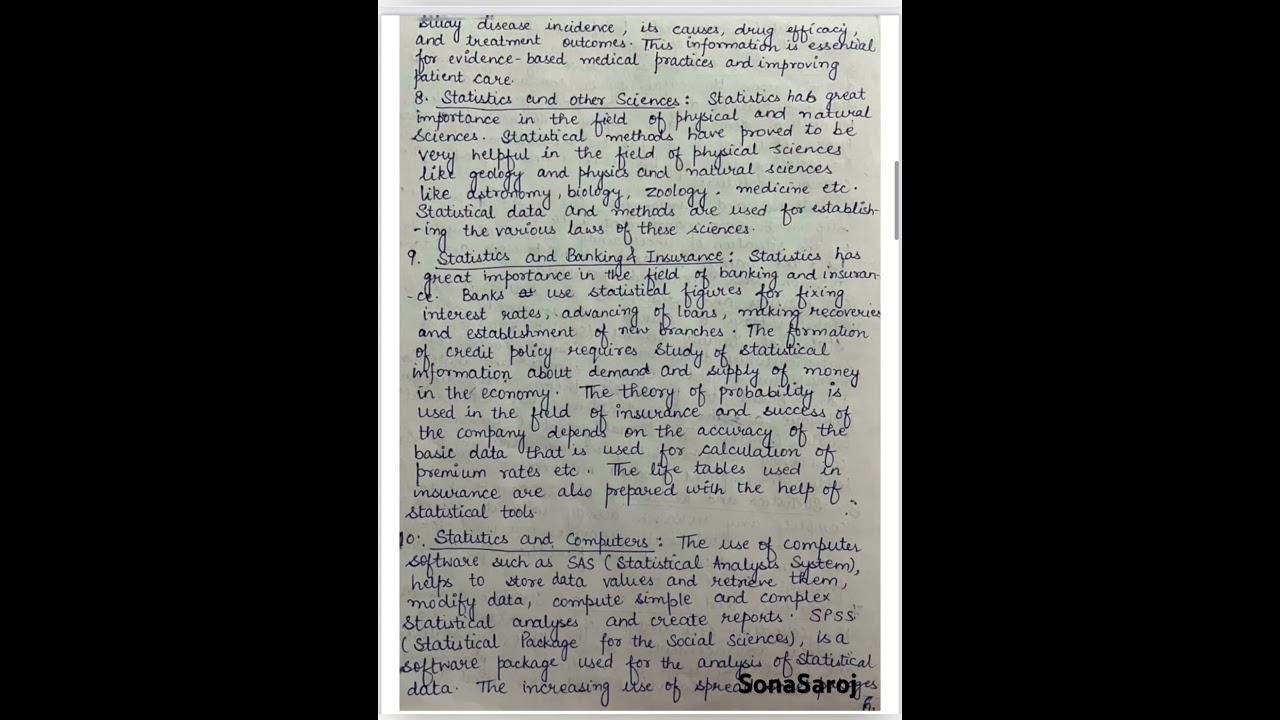 study disease incidence, its causes, drug efficacy,
and treatment outcomes. This information is essential
for evidence-based medical practices and improving
patient care.
8. Statistics and other Sciences: Statistics has great
importance in the field of physical and natural
Sciences. Statistical methods have proved to be
very helpful in the field of physical sciences
like geology and physics and natural sciences
like astronomy, biology, zoology, medicine etc.
Statistical data and methods are used for establish-
-ing the various laws of these sciences.
9. Statistics and Banking & Insurance: Statistics has
great importance in the field of banking and insuran-
-ce. Banks use statistical figures for fixing
interest rates, advancing of loans, making recoveries
and establishment of new branches. The formation
of credit policy requires study of statistical
information about demand and supply of money
in the economy. The theory of probability is
used in the field of insurance and success of
the company depends on the accuracy of the
basic data that is used for calculation of
premium rates etc. The life tables used in
insurance are also prepared with the help of
statistical tools.
10. Statistics and Computers: The use of computer
software such as SAS (Statistical Analysis System),
helps to store data values and retrieve them,
modify data, compute simple and complex
statistical analyses and create reports. SPSS
(Statistical Package for the Social Sciences), is a
software package used for the analysis of statistical
data. The increasing use of
SonaSaroj